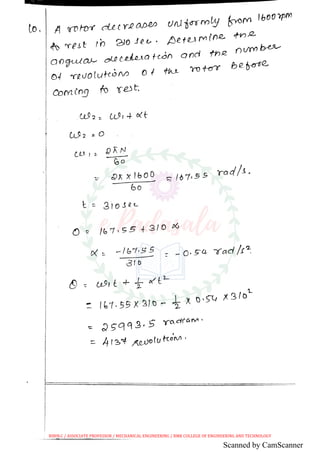 10. A rotor decreases uniformly from 1600 rpm
to rest in 310 sec. Determine the
angular deceleration and the number
of revolutions of the rotor before
Coming to rest.
ω2 = ω1 + αt
ω2 = 0
ω1 = 2πN
60
= 2π x 1600 = 167.55 rad/s.
60
t = 310 sec
0 = 167.55 + 310 α
α = -167.55 = -0.54 rad/s²
310
θ = ω1t + 1/2 αt²
= 167.55 x 310 - 1/2 x 0.54 x 310²
= 25993.5 radian.
= 4137 revolutions.
e Padasala
BIBIN.C / ASSOCIATE PROFESSOR / MECHANICAL ENGINEERING / RMK COLLEGE OF ENGINEERING AND TECHNOLOGY
Scanned by CamScanner